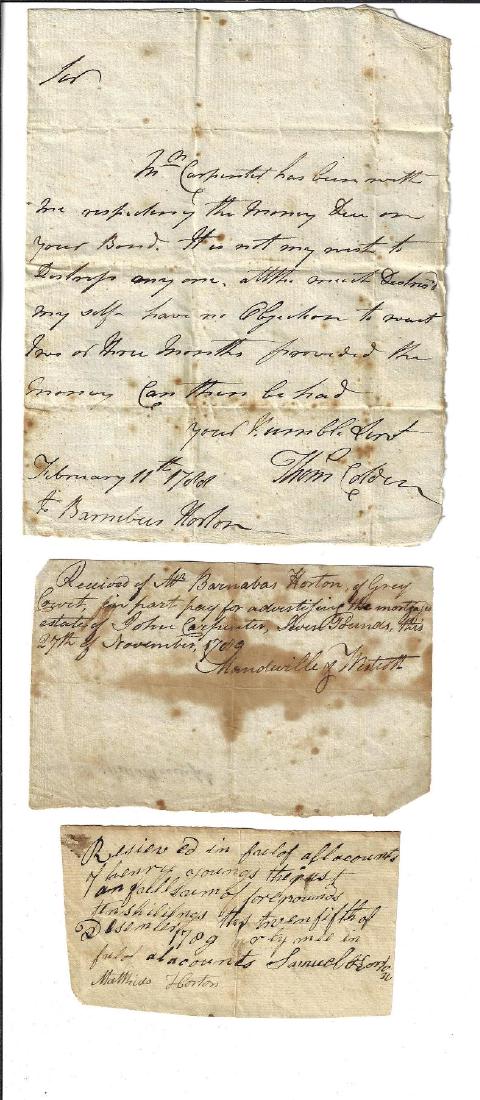 Sir
Mr Carpenter has been with
me respecting the Money Due on
your Bond. It is not my wish to
Distress any one, altho much Distres'd
my self have no Objection to wait
two or three Months provided the
money Can then be had
your Humble Servt
February 11th 1788 Thom Colden
to Barnibus Horton
Received of Mr Barnabas Horton, of Grey
Court, in part pay for advertising the mortgages
estate of John Carpenter, Seven Pounds, this
27th of November, 1789
Mandeville & Westcott
Resieved in full of all acounts
of henry youngs the just
and full Sum of fore pounds
ten shilings this twenfifth of
Desember 1789 by me in
full of al acounts Samuel Horton
Matthias Horton